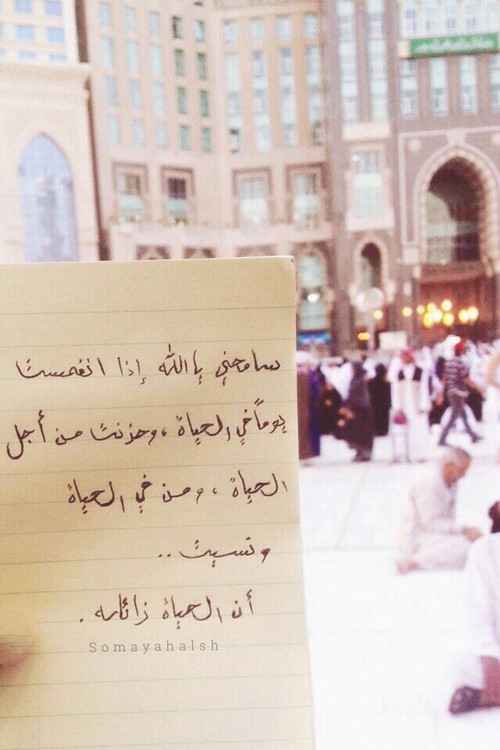 سامحني يا الله إذا انغمست
يوماً في الحياة ، وحزنت من أجل
الحياة ، ومن في الحياة
ونسيت ..
أن الحياة زائله .
Somayahalsh